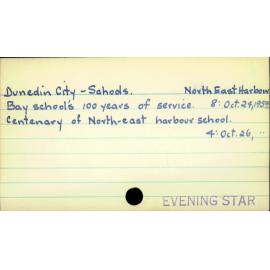 Dunedin City - Schools. North East Harbour
Bay school's 100 years of service. 8: Oct. 24, 1959
Centenary of North-east harbour school.
4: Oct. 26, "
EVENING STAR